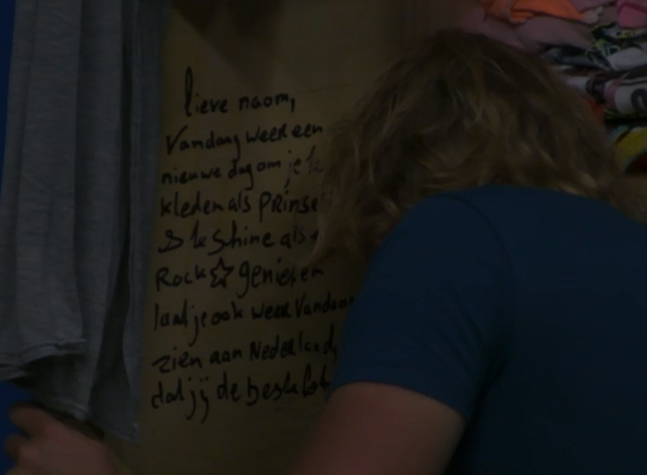 lieve naom,
Vandaag weer een
nieuwe dag om je te
kleden als Prinses
& te Shine als
Rock☆ genieten
laat je ook weer Vandaag
zien aan Nederland,
dat jij de beste